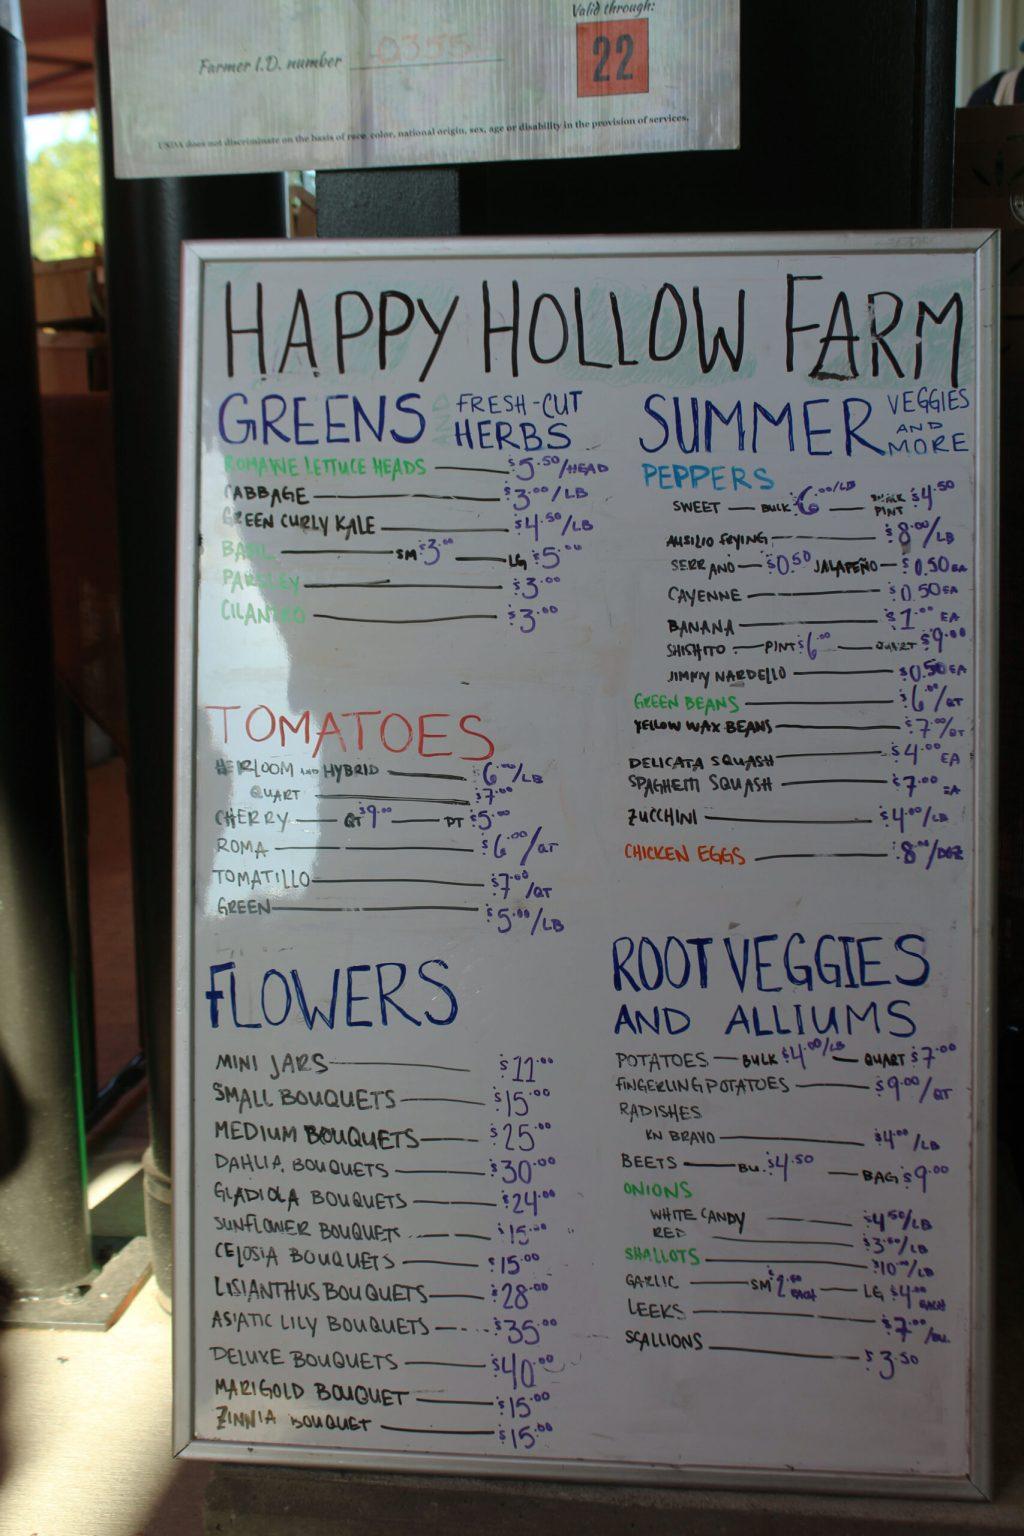 Valid through:
Farmer I.D. number 0355
22
USDA does not discriminate on the basis of race, color, national origin, sex, age or disability in the provision of services.
HAPPY HOLLOW FARM
GREENS AND FRESH-CUT HERBS
ROMAINE LETTUCE HEADS $5.50/HEAD
CABBAGE $3.00/LB
GREEN CURLY KALE $4.50/LB
BASIL SM $3.00 LG $5.00
PARSLEY $3.00
CILANTRO $3.00
TOMATOES
HEIRLOOM AND HYBRID $6.00/LB
QUART $7.00
CHERRY QT $9.00 PT $5.00
ROMA $6.00/QT
TOMATILLO $7.00/QT
GREEN $5.00/LB
FLOWERS
MINI JARS $11.00
SMALL BOUQUETS $15.00
MEDIUM BOUQUETS $25.00
DAHLIA BOUQUETS $30.00
GLADIOLA BOUQUETS $24.00
SUNFLOWER BOUQUETS $15.00
CELOSIA BOUQUETS $15.00
LISIANTHUS BOUQUETS $28.00
ASIATIC LILY BOUQUETS $35.00
DELUXE BOUQUETS $40.00
MARIGOLD BOUQUET $15.00
ZINNIA BOUQUET $15.00
SUMMER VEGGIES AND MORE
PEPPERS
SWEET BULK $6.00/LB PINT $4.50
AUSILIO FRYING $8.00/LB
SERRANO $0.50 JALAPEÑO $0.50 EA
CAYENNE $0.50 EA
BANANA $1.00 EA
SHISHITO PINT $6.00 QUART $9.00
JIMMY NARDELLO $0.50 EA
GREEN BEANS $6.00/QT
YELLOW WAX BEANS $7.00/QT
DELICATA SQUASH $4.00 EA
SPAGHETTI SQUASH $7.00 EA
ZUCCHINI $4.00/LB
CHICKEN EGGS $8.00/DOZ
ROOT VEGGIES
AND ALLIUMS
POTATOES BULK $4.00/LB QUART $7.00
FINGERLING POTATOES $9.00/QT
RADISHES
KN BRAVO $4.00/LB
BEETS BU. $4.50 BAG $9.00
ONIONS
WHITE CANDY $4.50/LB
RED /LB
SHALLOTS $10.00/LB
GARLIC SM EACH LG $4.00 EACH
LEEKS $7.00/BU.
SCALLIONS $3.50